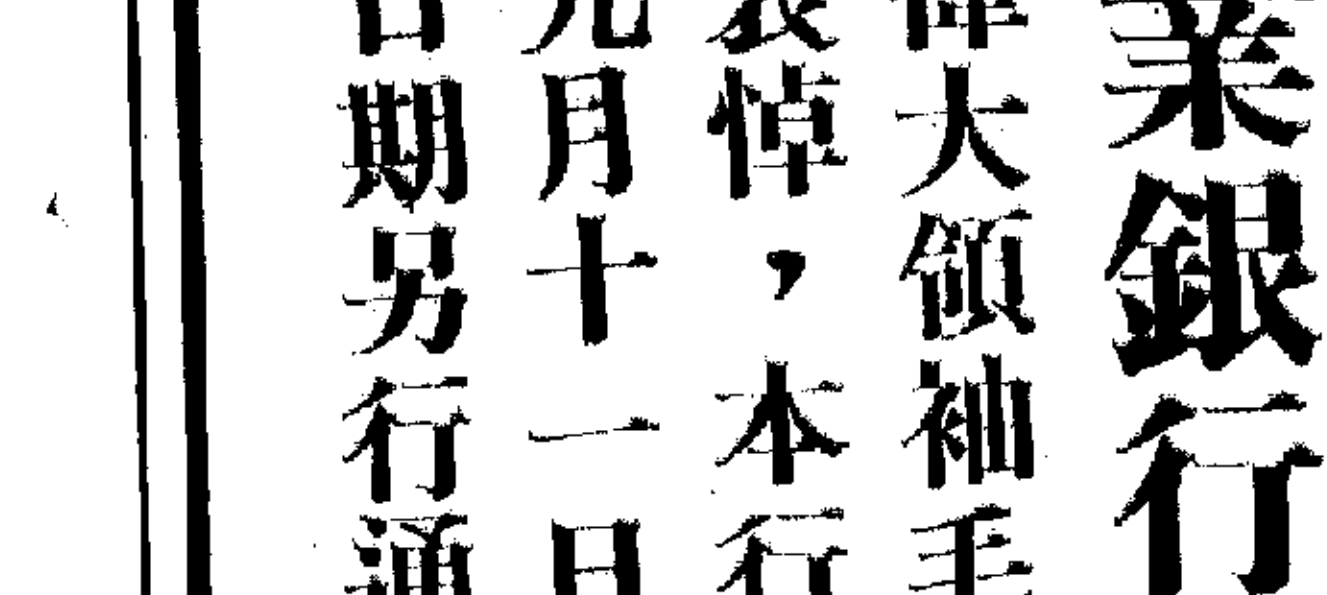 業銀行
偉大領袖毛
哀悼，本行
九月十一日
日期另行通